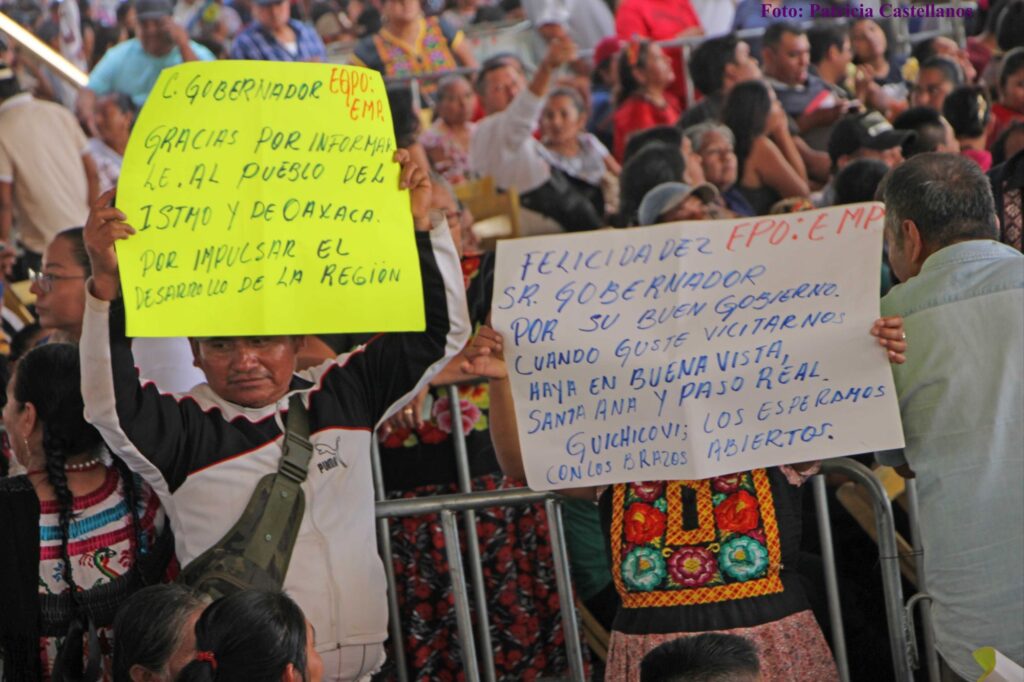 Foto: Patricia Castellanos
C. GOBERNADOR EQPO: EMP.
GRACIAS POR INFORMAR
LE. AL PUEBLO DEL
ISTMO Y DE OAXACA.
POR IMPULSAR EL
DESARROLLO DE LA REGIÓN
FELICIDADEZ EPO: EMP
SR. GOBERNADOR
POR SU BUEN GOBIERNO.
CUANDO GUSTE VICITARNOS
HAYA EN BUENA VISTA,
SANTA ANA Y PASO REAL.
GUICHICOVI; LOS ESPERAMOS
CON LOS BRAZOS ABIERTOS.
PUMA